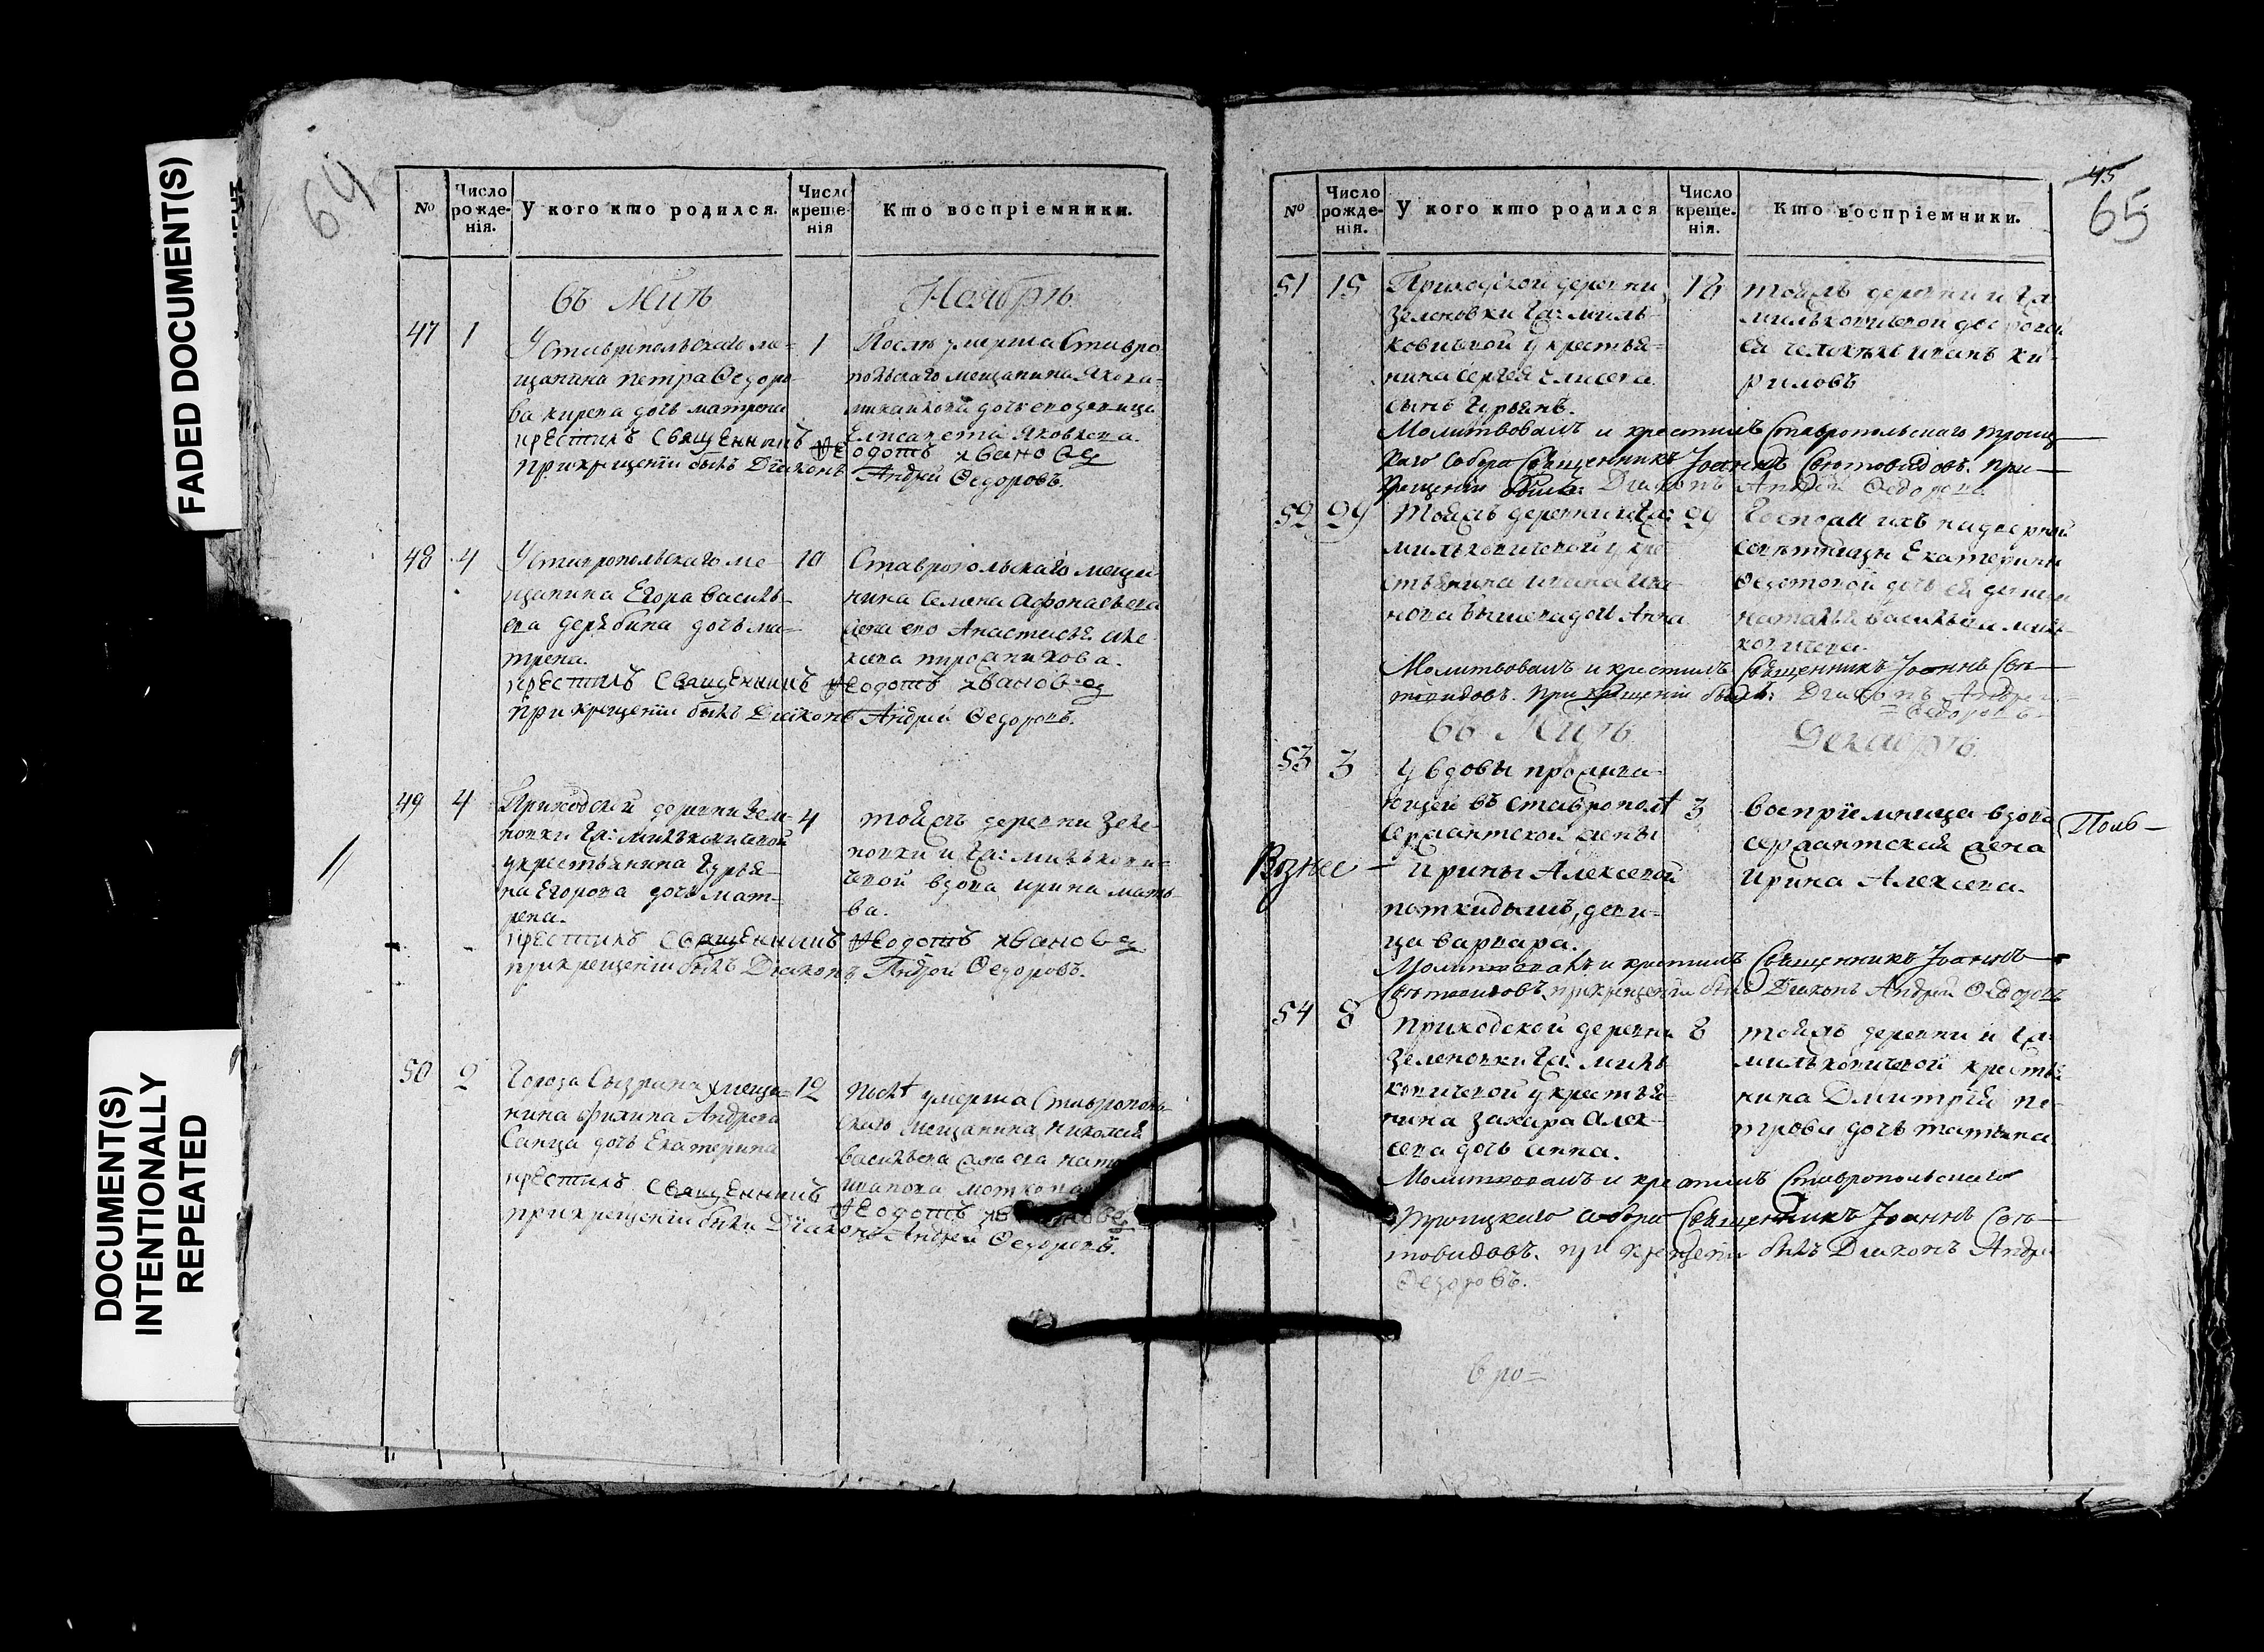 FADED DOCUMENT(S)
DOCUMENT(S)
INTENTIONALLY
REPEATED
64
№
Число рожде-нія.
У кого кто родился.
Число креще-нія
Кто воспріемники.
въ Мцѣ
Ноябрѣ
47 1
У Ставропольскаго ме-
щанина Петра Ѳедоро-
ва дочь матрена
крестилъ Священникъ
при крещеніи былъ Діаконъ
1
После умерша Ставро
польскаго мещанина Якова
михайлова дочь его девица
Елисавета Яковлева.
Ѳеодотъ Ивановъ
Андрей Ѳедоровъ.
48 4
У Ставропольскаго ме
щанина Егора Василь-
ева дерябина дочь ма=
трена.
крестилъ Священникъ
при крещеніи былъ Діаконъ
10
Ставропольскаго меща
нина Семена Афонасьева
жена его Анастасья
Ѳеодотъ Ивановъ
Андрей Ѳедоровъ.
49 4
Приходской деревни Зеле-
новки Гна: Мильковичевой
у крестьянина Гурья-
на Егорова дочь мат-
рена.
крестилъ Священникъ
при крещеніи былъ Діаконъ
4
тойжъ деревни Зеле-
новки и Гна: Милькови-
чевой вдова ирина
ва.
Ѳеодотъ Ивановъ
Андрей Ѳедоровъ.
50 9
Города Сызрана у меща=
нина филипа Андреева
дочь Екатерина
крестилъ Священникъ
при крещеніи были Діаконъ
12
послѣ умерша Ставрополь
скаго мещанина Николая
васильева
Ѳеодотъ
Андрей Ѳедоровъ.
45
65
№
Число рожде-нія.
У кого кто родился
Число креще.нія.
Кто воспріемники.
51 15
Приходской деревни
Зеленовки Гна: миль-
ковичевой у крестья=
нина Сергея Елисеева
сынъ Гурьянъ.
18
тойжъ деревни и Гна
мильковичевой дворовой
ея человекъ иванъ ки-
риловъ
Молитвовалъ и крестилъ Ставропольскаго троиц
каго Собора Священникъ Іоаннъ Свѣтовидовъ. при
крещеніи былъ: Діаконъ Андрей Ѳедоровъ
52 29
Тойжъ деревни Гна:
мильковичевой у кре
стьянина ивана ива
нова дочь Анна
29
Госпожи надворной
советницы Екатерины
Ѳедотовой дочь ея девица
наталья васильева миль-
ковичева.
Молитвовалъ и крестилъ Священникъ Іоаннъ Свѣ
товидовъ. при крещеніи былъ: Діаконъ Андрей
Ѳедоровъ
въ Мцѣ
Декабрѣ
53 3
У вдовы прожива-
ющей въ Ставрополѣ
Сержантской жены
Ирины Алексеевой
поткидышъ, деви-
ца варвара.
3
восприемница вдова
сержантская жена
Ирина Алексеева.
Вознес
Молитвовалъ и крестилъ Священникъ Іоаннъ
Свѣтовидовъ. при крещеніи былъ Діаконъ Андрей Ѳедоровъ
54 8
Приходской деревни
Зеленовки Гна: миль
ковичевой у крестья-
нина захара Алек-
сеева дочь анна.
8
тойжъ деревни и Гна
мильковичевой крестья
нина Дмитрея пе-
трова дочь татьяна
Молитвовалъ и крестилъ Ставропольскаго
Троицкаго собора Священникъ Іоаннъ Свѣ
товидовъ. при крещеніи былъ Діаконъ Андрей
Ѳедоровъ.